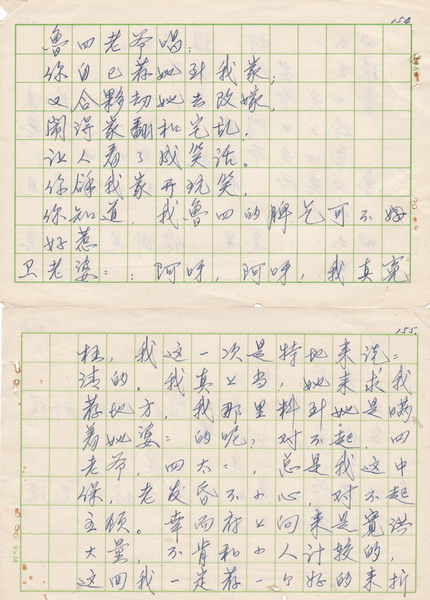 154
鲁四老爷唱:
你自己荐她到我家,
又合夥劫她去改嫁,
闹得家翻和宅乱,
让人看了成笑话。
你解我家开玩笑,
你知道,我鲁四的脾气可不好
好惹
卫老婆=:阿呀,阿呀,我真冤
155
枉,我这一次是特地来说=
请的。我真上当,她来求我
荐地方,我那里料到她是瞒
着她婆=的呢,对不起 四
老爷,四太=,总是我这中
保,老发昏不小心,对不起
主顾。幸而府上向来是宽洪
大量,不肯和小人计较的,
这回我一定荐一个好的来折